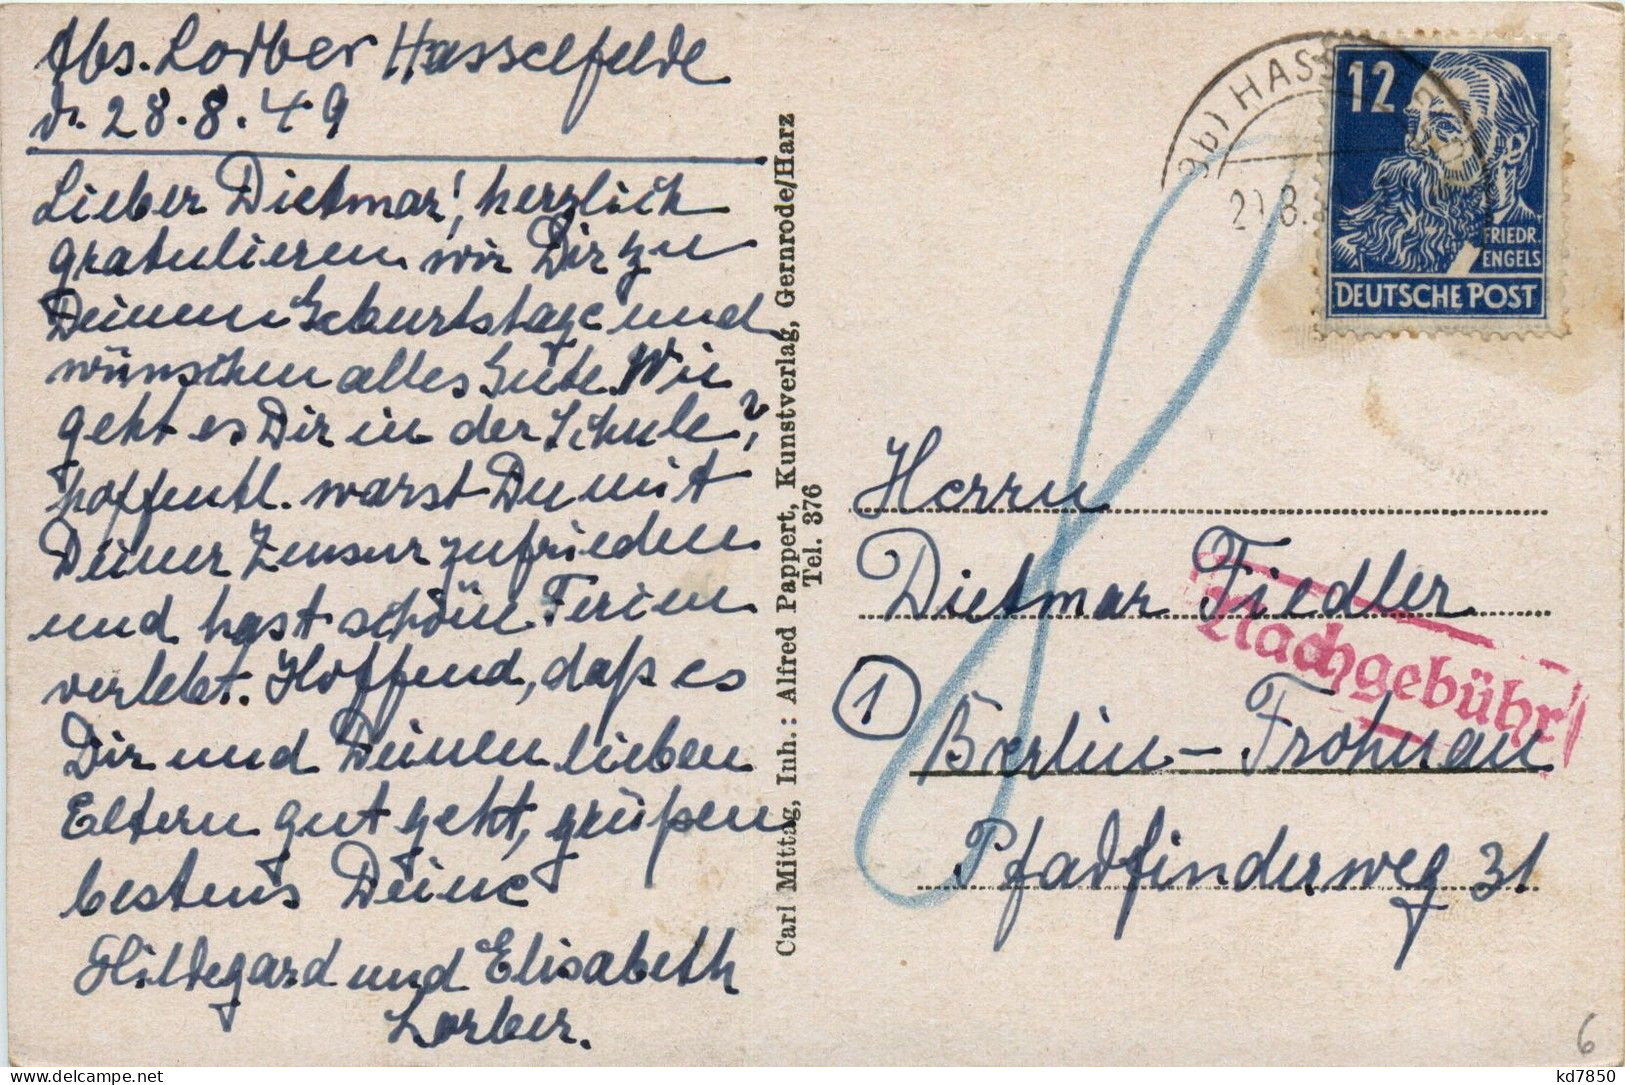 Abs. Lorber Hasselfelde
d. 28.8.49
Lieber Dietmar!, herzlich
gratulieren wir Dir zu
Deinem Geburtstage und
wünschen alles Gute. Wie
geht es Dir in der Schule?,
hoffentl. warst Du mit
Deiner Zensur zufrieden
und hast schöne Ferien
verlebt. Hoffend, daß es
Dir und Deinen lieben
Eltern gut geht, grüßen
bestens Deine
Hildegard und Elisabeth
Lorber.
Carl Mittag, Inh.: Alfred Pappert, Kunstverlag, Gernrode/Harz
Tel. 376
9b) HASS
8.
12
FRIEDR.
ENGELS
DEUTSCHE POST
Herrn
Dietmar Fiedler
Nachgebühr
1 Berlin-Frohnau
Pfadfinderweg 31
6
kd7850